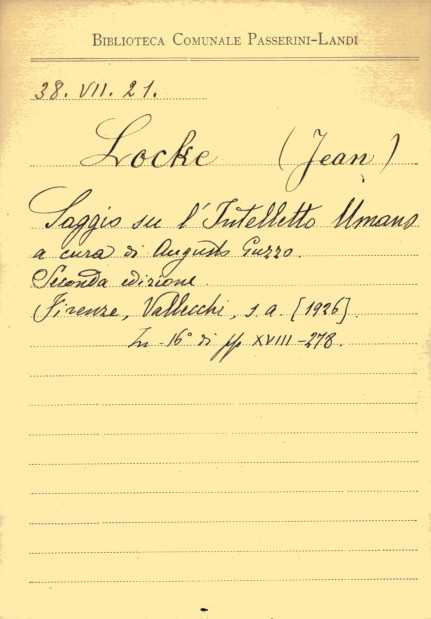 BIBLIOTECA COMUNALE PASSERINI-LANDI
38. VII. 21.
Locke (Jean)
Saggio su l'Intelletto Umano
a cura di Augusto Guzzo.
Seconda edizione.
Firenze, Vallecchi, s.a. [1926].
In-16° di pp XVIII-278.